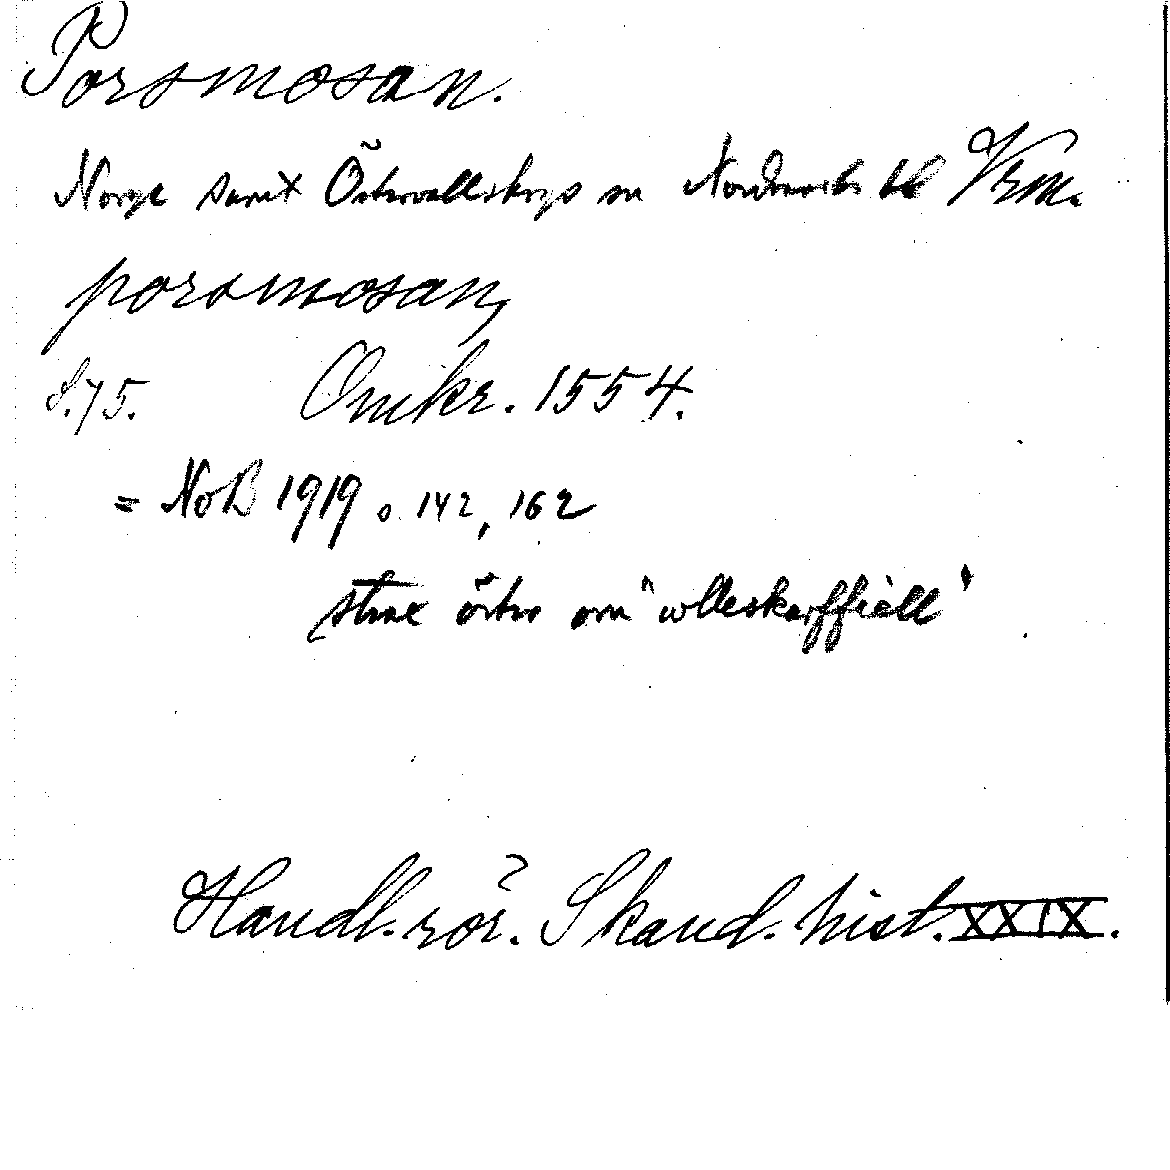 Porsmosan.
Norge samt Östervallskogs sn Nordmarks hd Vrm.
porsmosan,
S. 75. Omkr. 1554.
= NoB 1919 s. 142, 162
strax öster om "ulleskarffiell"
Handl. rör. Skand. hist. XXIX.